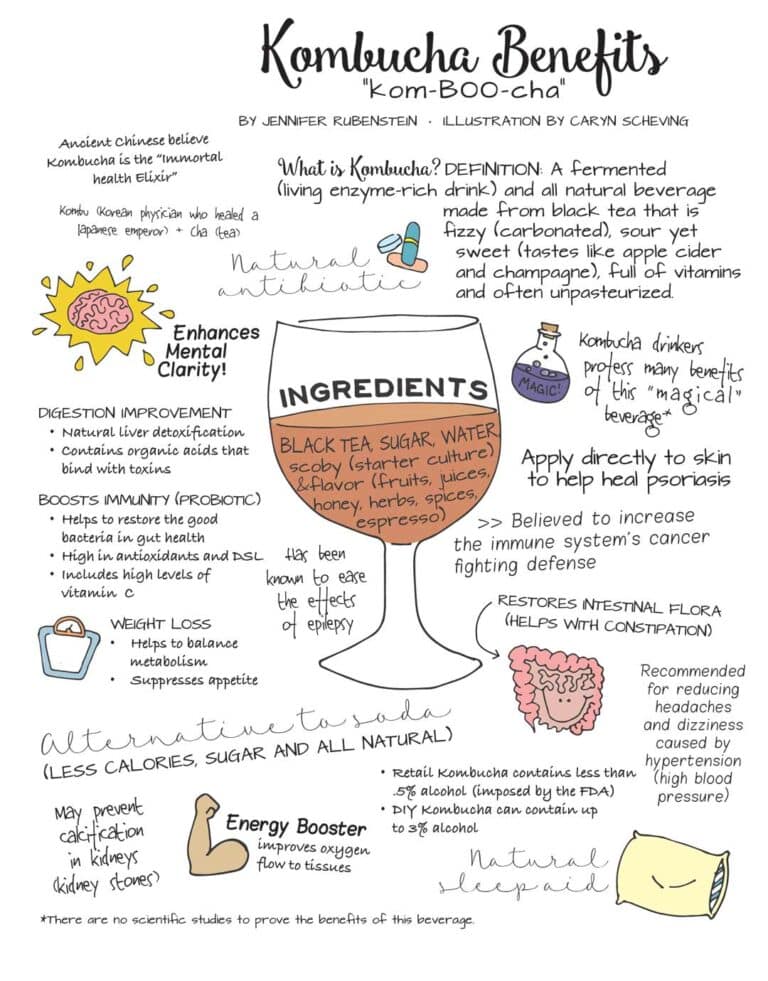 Kombucha Benefits
"kom-BOO-cha"
BY JENNIFER RUBENSTEIN · ILLUSTRATION BY CARYN SCHEVING
Ancient Chinese believe
Kombucha is the "Immortal
health Elixir"
Kombu (Korean physician who healed a
Japanese emperor) + Cha (tea)
What is Kombucha? DEFINITION: A fermented
(living enzyme-rich drink) and all natural beverage
made from black tea that is
fizzy (carbonated), sour yet
sweet (tastes like apple cider
and champagne), full of vitamins
and often unpasteurized.
Natural
antibiotic
Enhances
Mental
Clarity!
MAGIC!
Kombucha drinkers
profess many benefits
of this "magical"
beverage*
INGREDIENTS
BLACK TEA, SUGAR, WATER
scoby (starter culture)
&flavor (fruits, juices,
honey, herbs, spices,
espresso)
DIGESTION IMPROVEMENT
• Natural liver detoxification
• Contains organic acids that
bind with toxins
BOOSTS IMMUNITY (PROBIOTIC)
• Helps to restore the good
bacteria in gut health
• High in antioxidants and DSL
• Includes high levels of
vitamin C
Apply directly to skin
to help heal psoriasis
>> Believed to increase
the immune system's cancer
fighting defense
Has been
known to ease
the effects
of epilepsy
RESTORES INTESTINAL FLORA
(HELPS WITH CONSTIPATION)
WEIGHT LOSS
• Helps to balance
metabolism
• Suppresses appetite
Recommended
for reducing
headaches
and dizziness
caused by
hypertension
(high blood
pressure)
Alternative to soda
(LESS CALORIES, SUGAR AND ALL NATURAL)
• Retail Kombucha contains less than
.5% alcohol (imposed by the FDA)
• DIY Kombucha can contain up
to 3% alcohol
May prevent
calcification
in kidneys
(kidney stones)
Energy Booster
improves oxygen
flow to tissues
Natural
sleep aid
*There are no scientific studies to prove the benefits of this beverage.